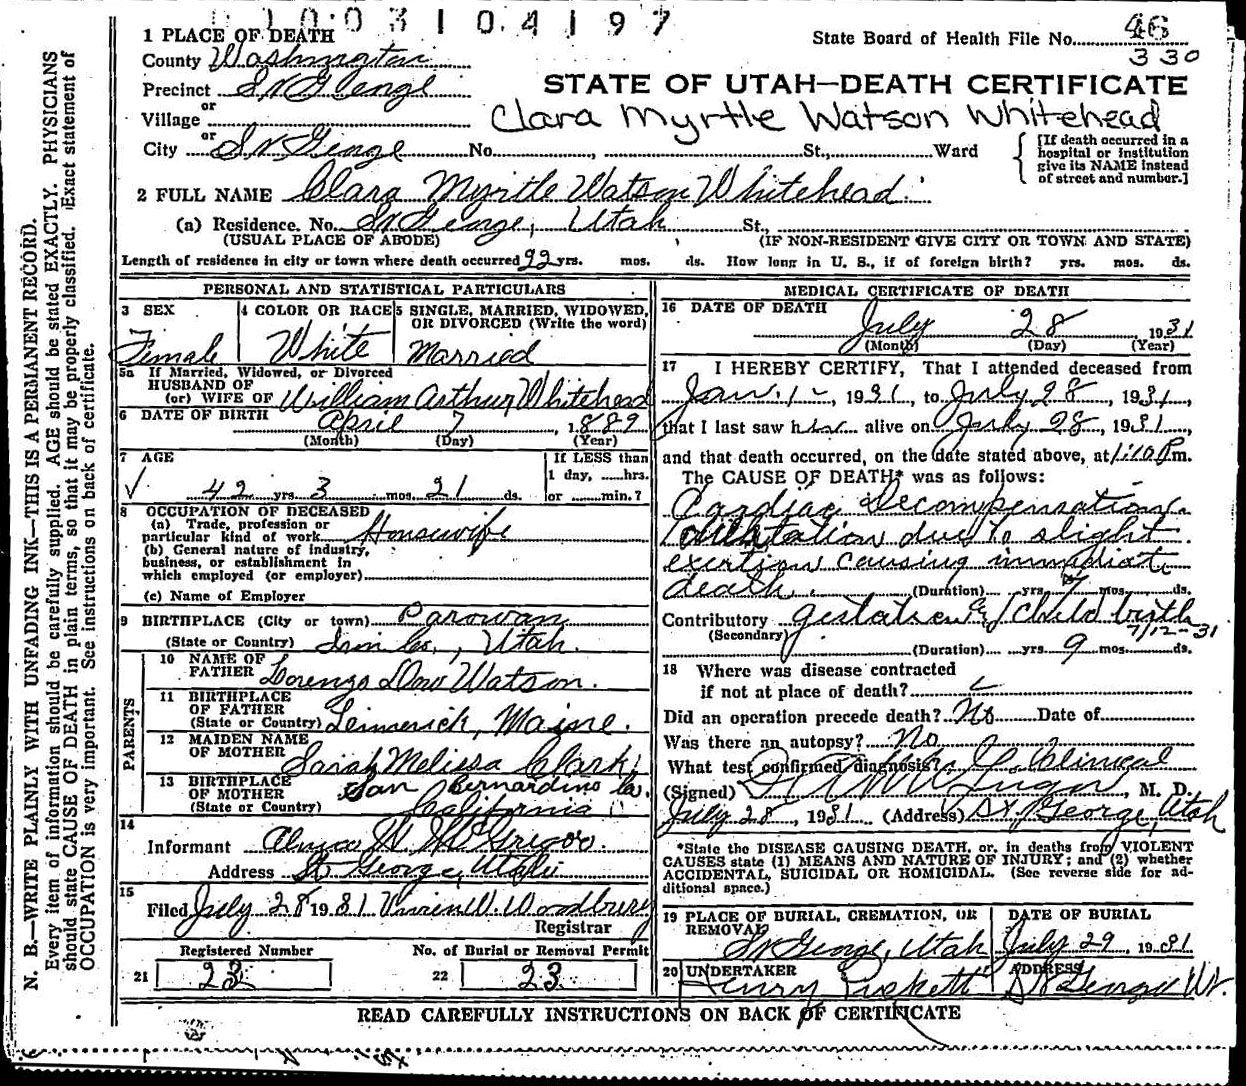 1003104197
46
State Board of Health File No.
330
1 PLACE OF DEATH
County Washington
STATE OF UTAH—DEATH CERTIFICATE
Precinct St George
or
Village
Clara Myrtle Watson Whitehead
or
City St George No. , St., Ward
[If death occurred in a hospital or institution give its NAME instead of street and number.]
2 FULL NAME Clara Myrtle Watson Whitehead
(a) Residence. No. St George, Utah St.,
(USUAL PLACE OF ABODE) (IF NON-RESIDENT GIVE CITY OR TOWN AND STATE)
Length of residence in city or town where death occurred 22 yrs. mos. ds. How long in U. S., if of foreign birth? yrs. mos. ds.
PERSONAL AND STATISTICAL PARTICULARS
3 SEX 4 COLOR OR RACE 5 SINGLE, MARRIED, WIDOWED,
OR DIVORCED (Write the word)
Female White Married
5a If Married, Widowed, or Divorced
HUSBAND OF
(or) WIFE OF William Arthur Whitehead
6 DATE OF BIRTH April 7, 1889
(Month) (Day) (Year)
7 AGE If LESS than
1 day, hrs.
√ 42 yrs. 3 mos. 21 ds. or min.?
8 OCCUPATION OF DECEASED
(a) Trade, profession or
particular kind of work Housewife
(b) General nature of industry,
business, or establishment in
which employed (or employer)
(c) Name of Employer
9 BIRTHPLACE (City or town) Parowan
(State or Country) Iron Co., Utah.
PARENTS
10 NAME OF
FATHER Lorenzo Dow Watson.
11 BIRTHPLACE
OF FATHER
(State or Country) Limerick, Maine.
12 MAIDEN NAME
OF MOTHER Sarah Melissa Clark
13 BIRTHPLACE San Bernardino Co.
OF MOTHER
(State or Country) California
14
Informant W. McGregor
Address St George, Utah
15
Filed July 28 1931 W. Woodbury
Registrar
Registered Number No. of Burial or Removal Permit
21 23 22 23
MEDICAL CERTIFICATE OF DEATH
16 DATE OF DEATH
July 28 1931
(Month) (Day) (Year)
17 I HEREBY CERTIFY, That I attended deceased from
Jan. 1, 1931, to July 28, 1931,
that I last saw her alive on July 28, 1931,
and that death occurred, on the date stated above, at 1:10 P.m.
The CAUSE OF DEATH* was as follows:
Cardiac Decompensation.
dilatation due to slight
exertion causing immediate
death. (Duration) yrs. 7 mos. ds.
Contributory gestation & Child birth
(Secondary) 7/12-31
(Duration) yrs. 9 mos. ds.
18 Where was disease contracted
if not at place of death?
Did an operation precede death? No Date of
Was there an autopsy? No
What test confirmed diagnosis? Clinical
(Signed) , M. D.
July 28, 1931 (Address) St. George, Utah
*State the DISEASE CAUSING DEATH, or, in deaths from VIOLENT
CAUSES state (1) MEANS AND NATURE OF INJURY; and (2) whether
ACCIDENTAL, SUICIDAL OR HOMICIDAL. (See reverse side for ad-
ditional space.)
19 PLACE OF BURIAL, CREMATION, OR DATE OF BURIAL
REMOVAL?
St George, Utah July 29, 1931
20 UNDERTAKER ADDRESS
Henry Pickett St George Ut.
READ CAREFULLY INSTRUCTIONS ON BACK OF CERTIFICATE
N. B.—WRITE PLAINLY WITH UNFADING INK—THIS IS A PERMANENT RECORD.
Every item of information should be carefully supplied. AGE should be stated EXACTLY. PHYSICIANS
should state CAUSE OF DEATH in plain terms, so that it may be properly classified. Exact statement of
OCCUPATION is very important. See instructions on back of certificate.